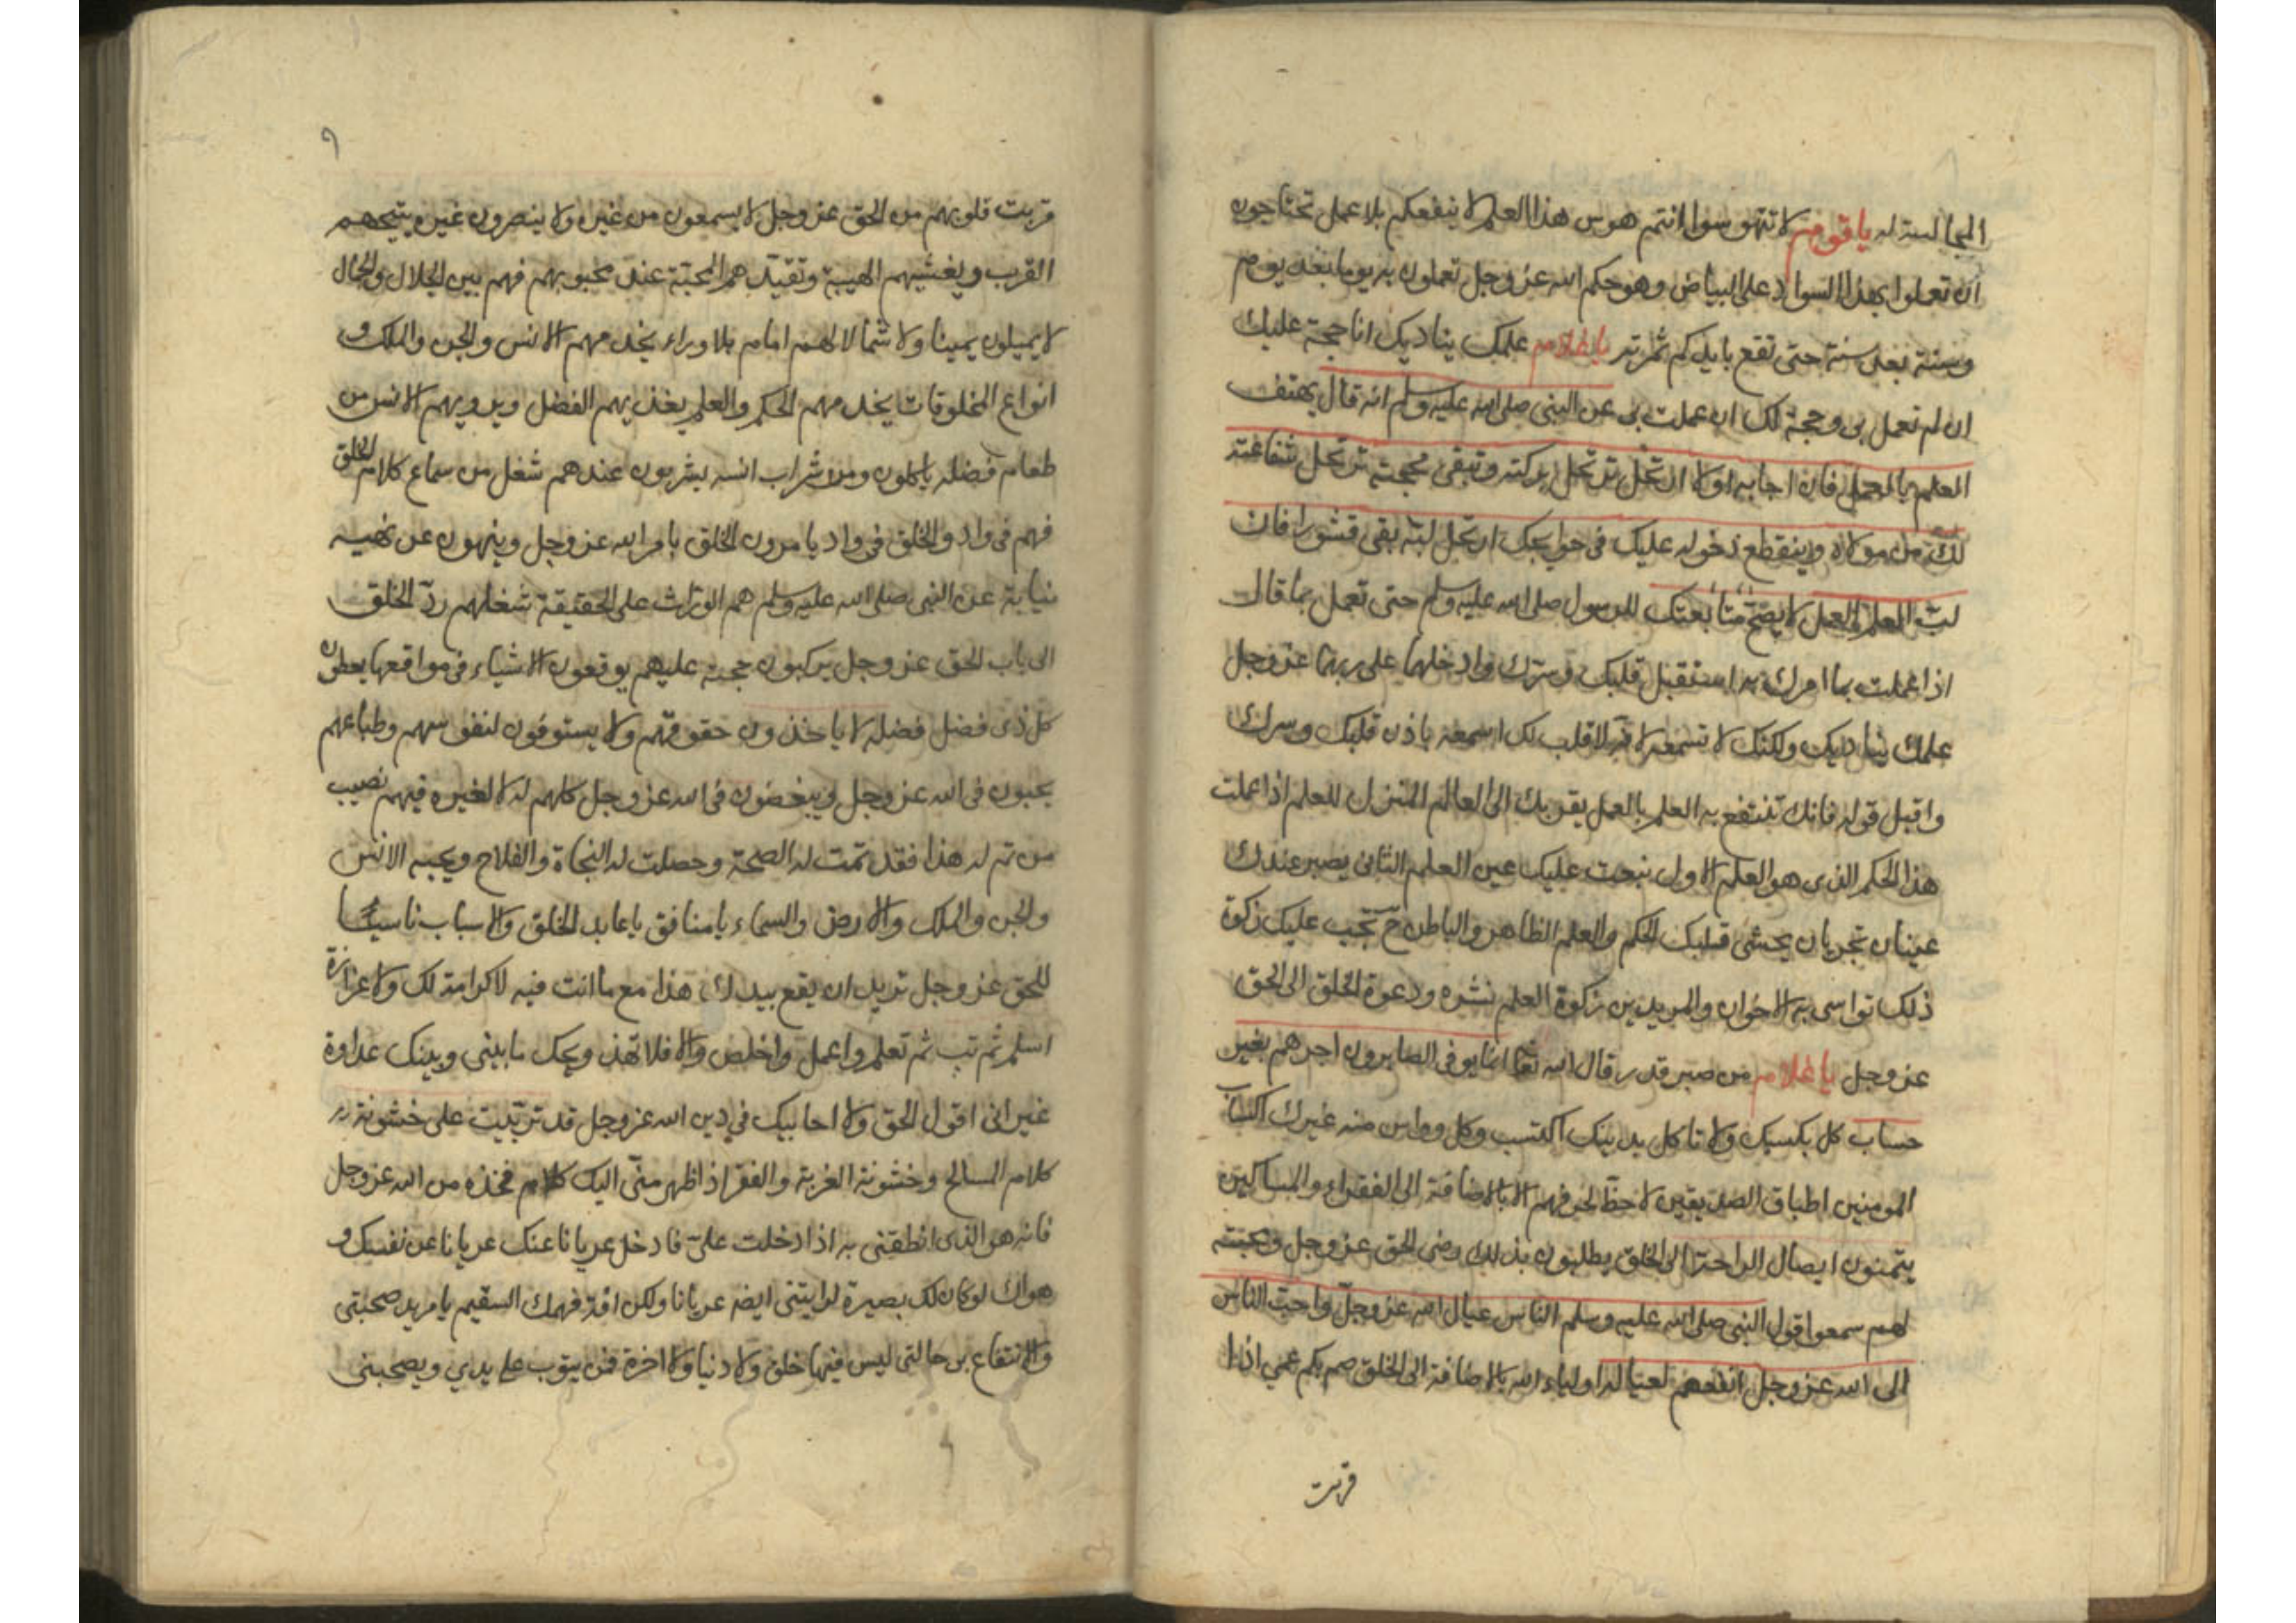 المجالسة له يا قوم لا تتهوسوا انتم هوس هذا العلم لا ينفعكم بلا عمل تحتاجون
ان تعملوا بهذا السواد على البياض وهو حكم الله عز وجل تعملون به يوما بعد يوم
وسنة بعد سنة حتى تقع بايديكم ثمرته يا غلام علمك يناديك انا حجة عليك
ان لم تعمل بى وحجة لك ان عملت بى عن النبى صلى الله عليه وسلم انه قال يهتف
العلم بالعمل فان اجابه والا ارتحل ترتحل بركته وتبقى حجته ترتحل شفاعته
لك من مولاه وينقطع دخوله عليك فى حوايجك ارتحل لبّه بقى قشورا فان
لبّ العلم العمل لا يصحّ متابعتك للرسول صلى الله عليه وسلم حتى تعمل بما قال
اذا عملت بما امرك به استقبل قلبك وسرك وادخلهما على ربهما عز وجل
علمك يناديك ولكنك لا تسمعه لانه لا قلب لك اسمعه باذن قلبك وسرك
واقبل قوله فانك تنتفع به العلم بالعمل يقربك الى العالم المنزل للعلم اذا عملت
هذا الحكم الذى هو العلم الاول نبعت عليك عين العلم الثانى يصير عندك
عينان تجريان يحشى قلبك الحكم والعلم الظاهر والباطن ح تجب عليك زكوة
ذلك تواسى به الاخوان والمريدين زكوة العلم نشره ودعوة الخلق الى الحق
عز وجل يا غلام من صبر قدر قال الله تعا انما يوفى الصابرون اجرهم بغير
حساب كل بكسبك ولا تاكل بدينك اكتسب وكل وواس منه غيرك اكتساب
المومنين اطباق الصديقين لا حظّ لحرفهم الا بالاضافة الى الفقراء والمساكين
يتمنون ايصال الراحة الى الخلق يطلبون بذلك رضى الحق عز وجل ومحبته
لهم سمعوا قول النبى صلى الله عليه وسلم الناس عيال الله عز وجل واحبّ الناس
الى الله عز وجل انفعهم لعياله اولياء الله بالاضافة الى الخلق صم بكم عمى اذا
قربت
٩
قربت قلوبهم من الحق عز وجل لا يسمعون من غيره ولا ينصرون غيره يتيحهم
القرب ويغشيهم الهيبة وتقيّدهم المحبّة عند محبوبهم فهم بين الجلال والجمال
لا يميلون يمينا ولا شمالا لهم امام بلا وراء يخدمهم الانس والجن والملك و
انواع المخلوقات يخدمهم الحكم والعلم يغذيهم الفضل ويرويهم الانس من
طعام فضله ياكلون ومن شراب انسه يشربون عندهم شغل من سماع كلام الخلق
فهم فى واد والخلق فى واد يامرون الخلق بامر الله عز وجل وينهون عن نهيه
نيابة عن النبى صلى الله عليه وسلم هم الورّاث على الحقيقة شغلهم ردّ الخلق
الى باب الحق عز وجل يركبون حجته عليهم يوقعون الاشياء فى مواقعها يعطون
كل ذى فضل فضله لا ياخذون حقوقهم ولا يستوفون لنفوسهم وطباعهم
يحبون فى الله عز وجل ويبغضون فى الله عز وجل كلهم له لا لغيره فيهم نصيب
من تم له هذا فقد تمت له الصحة وحصلت له النجاة والفلاح ويحبه الانس
والجن والملك والارض والسماء يا منافق يا عابد الخلق والاسباب ناسيًا
للحق عز وجل تريد ان يقع بيدك هذا مع ما انت فيه لا كرامة لك ولا عزازة
اسلم ثم تب ثم تعلم واعمل واخلص والا فلا تهذ ويحك ما بينى وبينك عداوة
غير انى اقول الحق ولا احابيك في دين الله عز وجل قد تربّيت على خشونة
كلام المسالح وخشونة الغربة والفقر اذا ظهر منّى اليك كلام فخذه من الله عز وجل
فانه هو الذى انطقنى به اذا دخلت علىّ فادخل عريانا عنك عريانا عن نفسك و
هواك لو كان لك بصيرة لرايتنى ايضه عريانا ولكن افة فهمك السقيم يا مريد صحبتى
والانتفاع بى حالتى ليس فيها خلق ولا دنيا ولا اخرة فمن يتوب على يدي ويصحبنى